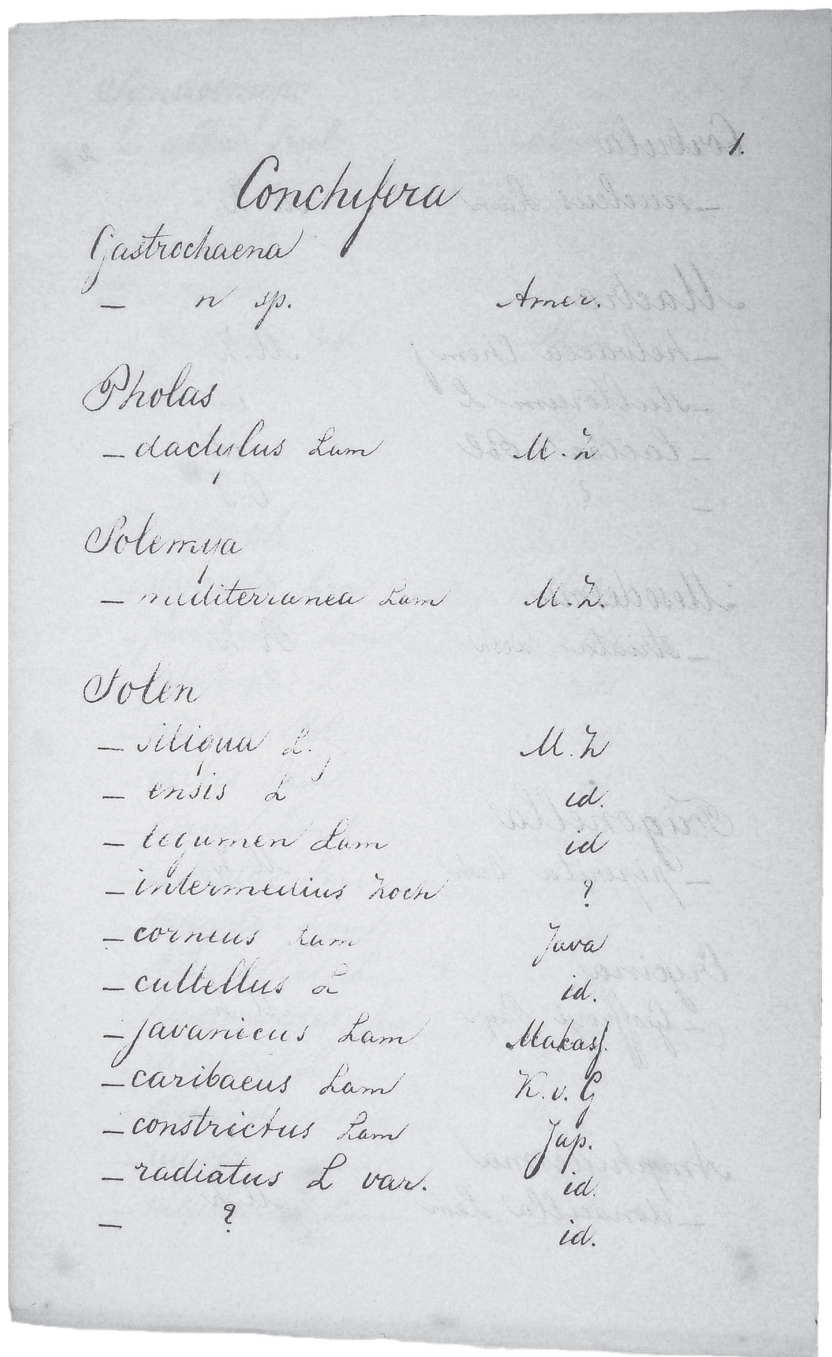 1.
Conchifera
Gastrochaena
— n sp. Amer.
Pholas
— dactylus Lam M. Z
Solemya
— mediterranea Lam M. Z.
Solen
— siliqua L. M. Z
— ensis L id.
— legumen Lam id
— intermedius Koch ?
— corneus Lam Java
— cultellus L id.
— javanicus Lam Makass.
— caribaeus Lam K. v. G
— constrictus Lam Jap.
— radiatus L var. id.
— ? id.